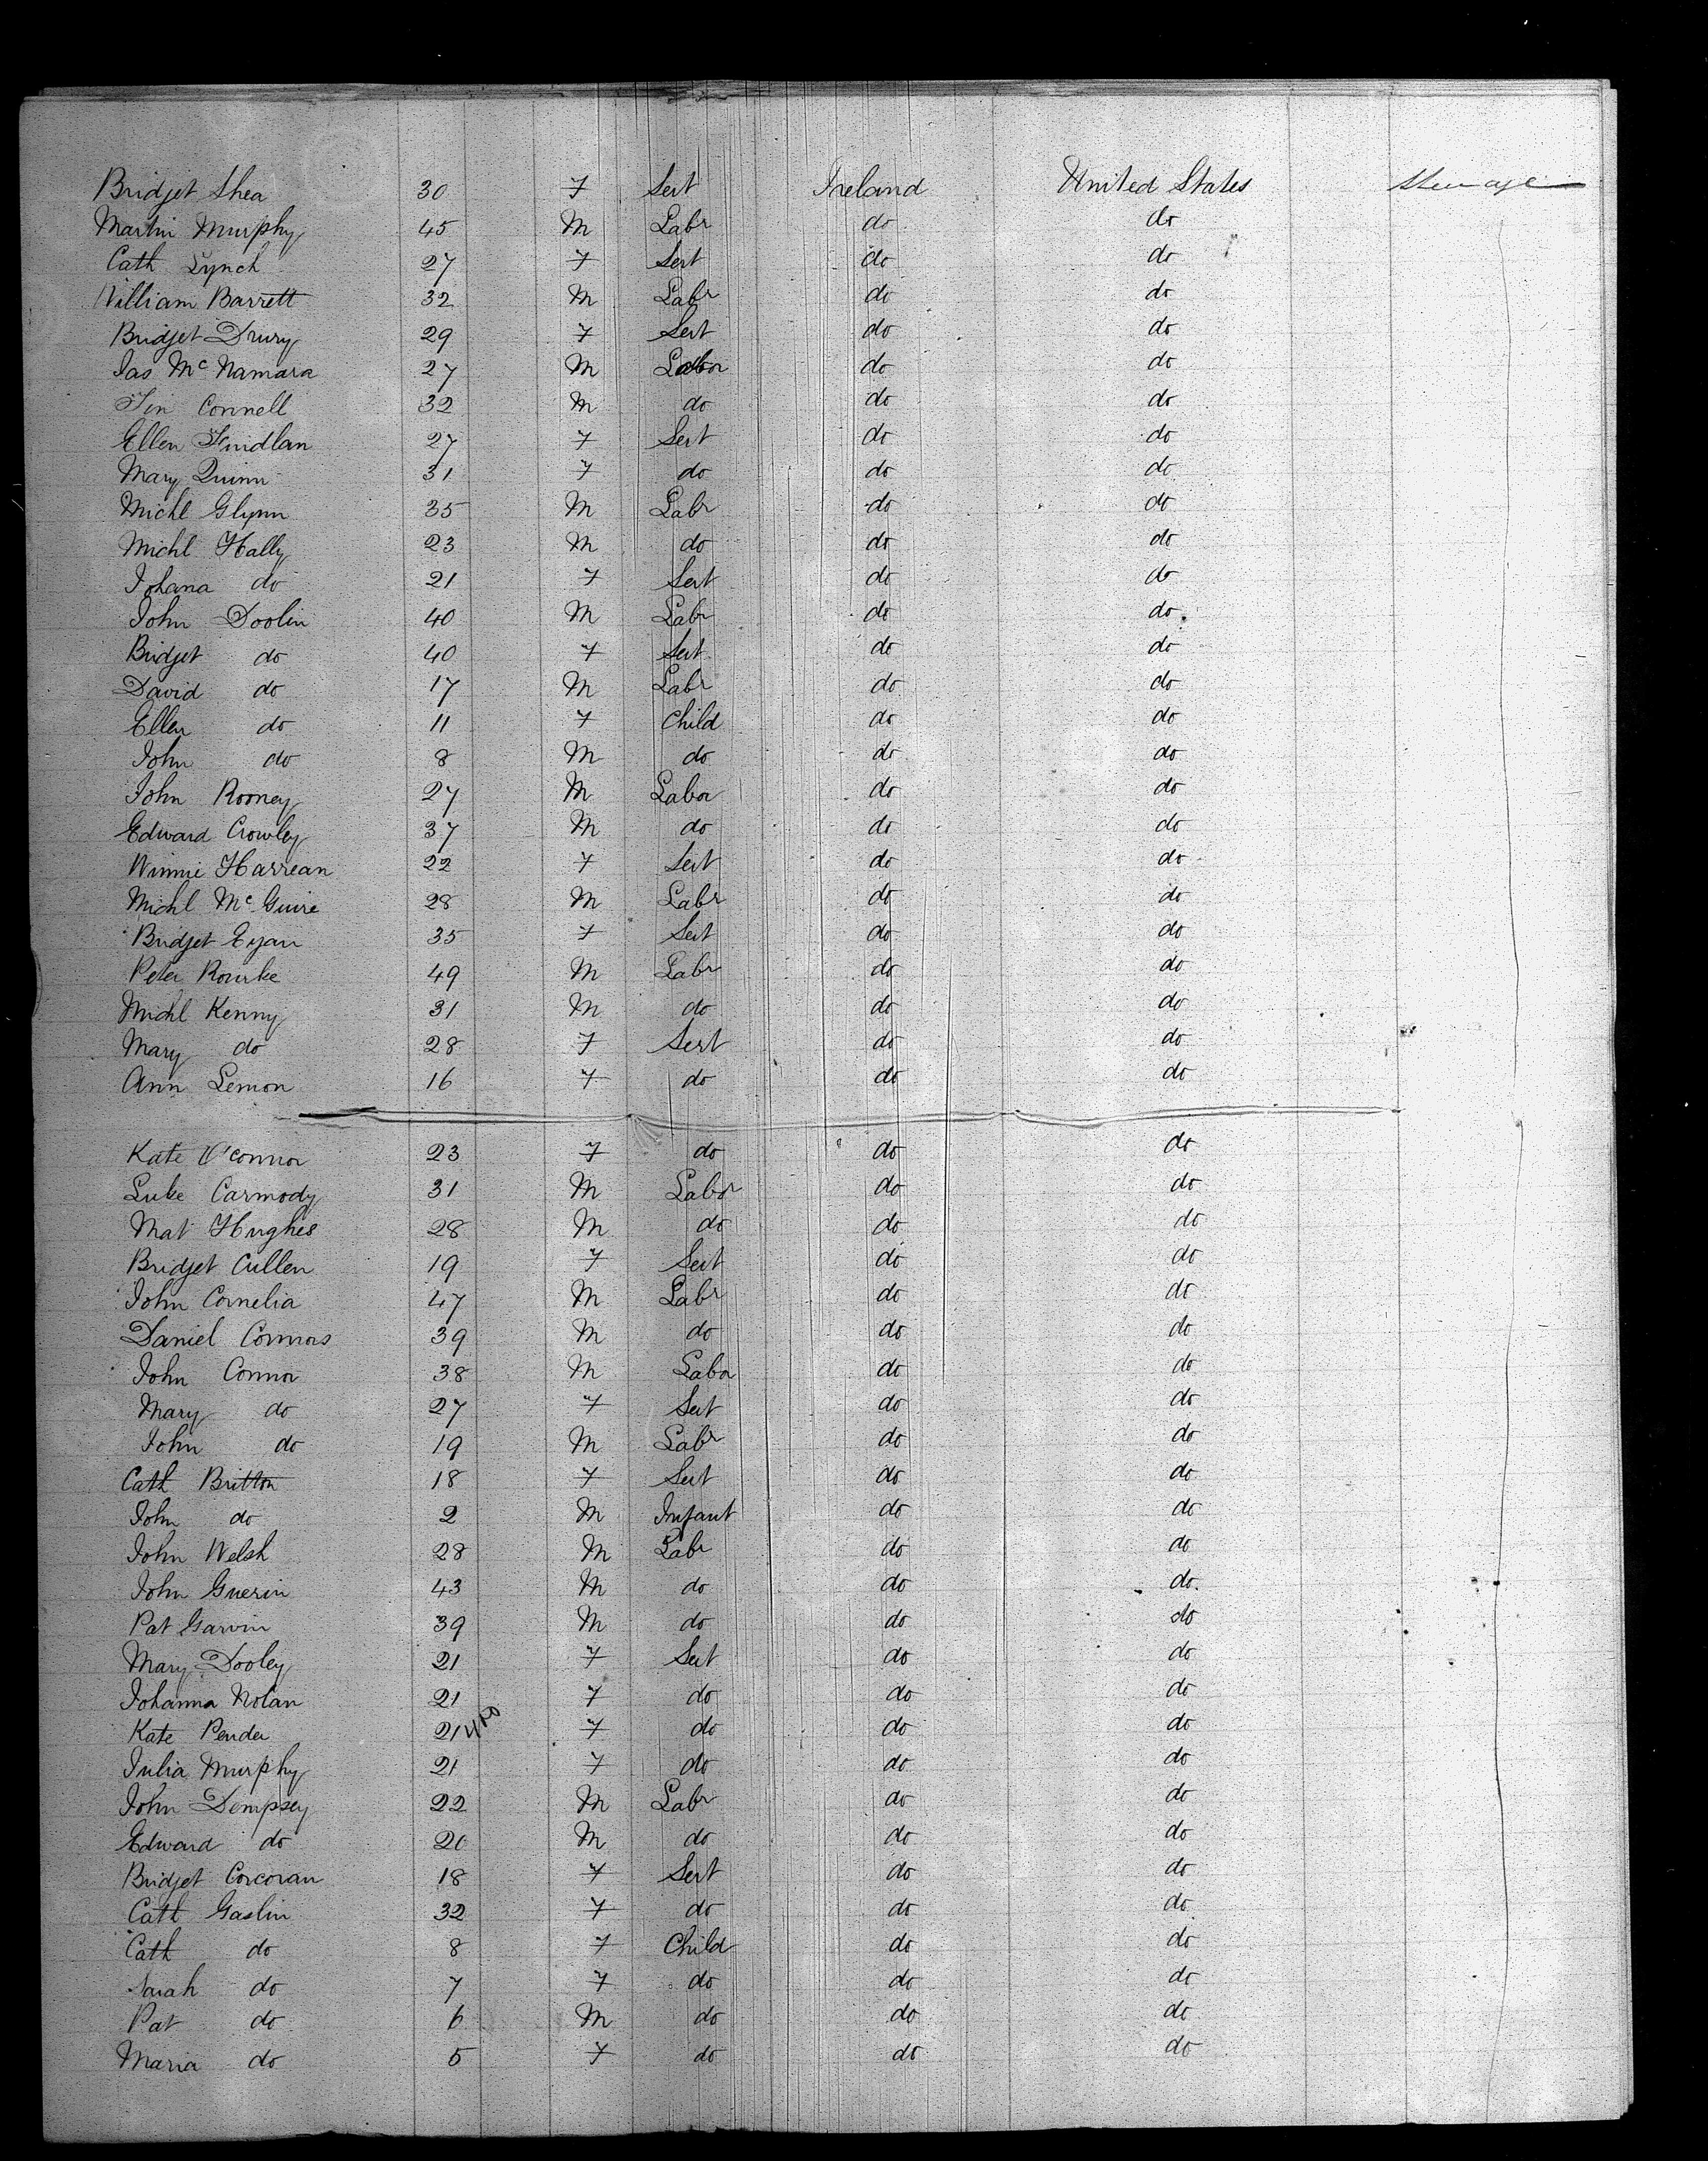 Bridget Shea 30 F Sert Ireland United States Steerage
Martin Murphy 45 M Labr do do
Cath Lynch 27 F Sert do do
William Barrett 32 M Labr do do
Bridget Drury 29 F Sert do do
Jas McNamara 27 M Labor do do
Connell 32 M do do do
Ellen 27 F Sert do do
Mary Quinn 31 F do do do
Michl Glynn 35 M Labr do do
Michl Hally 23 M do do do
Johana do 21 F Sert do do
John Doolin 40 M Labr do do
Bridget do 40 F Sert do do
David do 17 M Labr do do
Ellen do 11 F Child do do
John do 8 M do do do
John Rooney 27 M Labor do do
Edward Crowley 37 M do do do
Winnie Harrean 22 F Sert do do
Michl McGuire 28 M Labr do do
Bridget Egan 35 F Sert do do
Peter Rourke 49 M Labr do do
Michl Kenny 31 M do do do
Mary do 28 F Sert do do
Ann Lemon 16 F do do do
Kate O'Connor 23 F do do do
Luke Carmody 31 M Labor do do
Mat Hughes 28 M do do do
Bridget Cullen 19 F Sert do do
John Cornelia 47 M Labr do do
Daniel Connors 39 M do do do
John Connor 38 M Labor do do
Mary do 27 F Sert do do
John do 19 M Labr do do
Cath Britton 18 F Sert do do
John do 2 M Infant do do
John Welsh 28 M Labr do do
John Guerin 43 M do do do
Pat Garvin 39 M do do do
Mary Dooley 21 F Sert do do
Johanna Nolan 21 F do do do
Kate Pender 21 F do do do
Julia Murphy 21 F do do do
John Dempsey 22 M Labr do do
Edward do 20 M do do do
Bridget Corcoran 18 F Sert do do
Cath Gaslin 32 F do do do
Cath do 8 F Child do do
Sarah do 7 F do do do
Pat do 6 M do do do
Maria do 5 F do do do